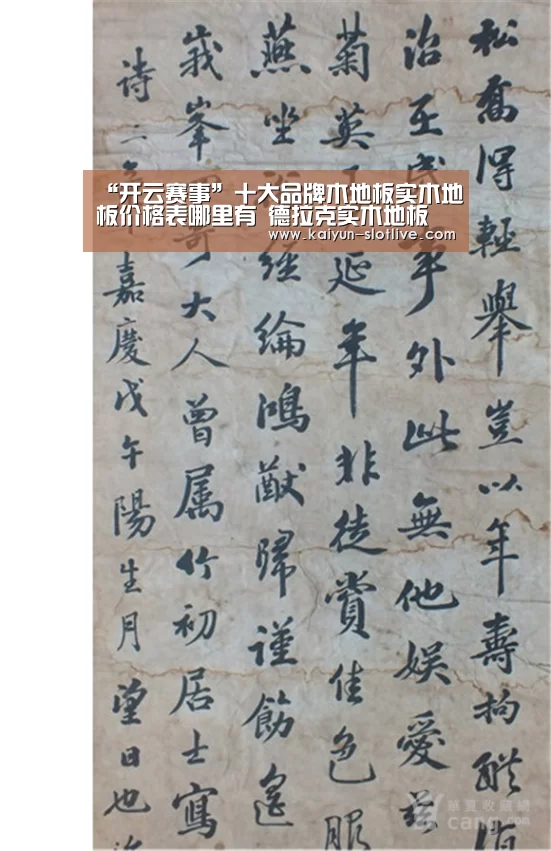 “开云赛事”十大品牌木地板实木地
板价格表哪里有 德拉克实木地板
www.kaiyun-slotlive.com
松喬得輕舉豈以年壽拘醉
治至事外此無他娛愛茲
菊英延年非徒賞佳色服
燕坐經綸鴻猷歸謹飭遙
峩峯大人曾属竹初居士寫
诗二嘉慶戊午陽生月望日也
華夏收藏網
cang.com